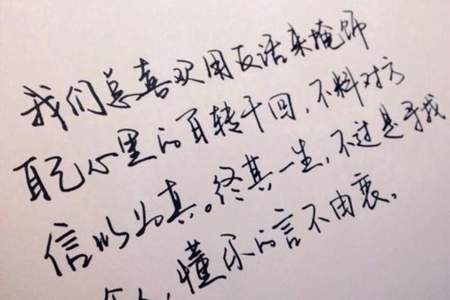 我们总喜欢用反话来掩饰
自己心里的百转千回,不料对方
信以为真。终其一生,不过是寻找
懂你的言不由衷.